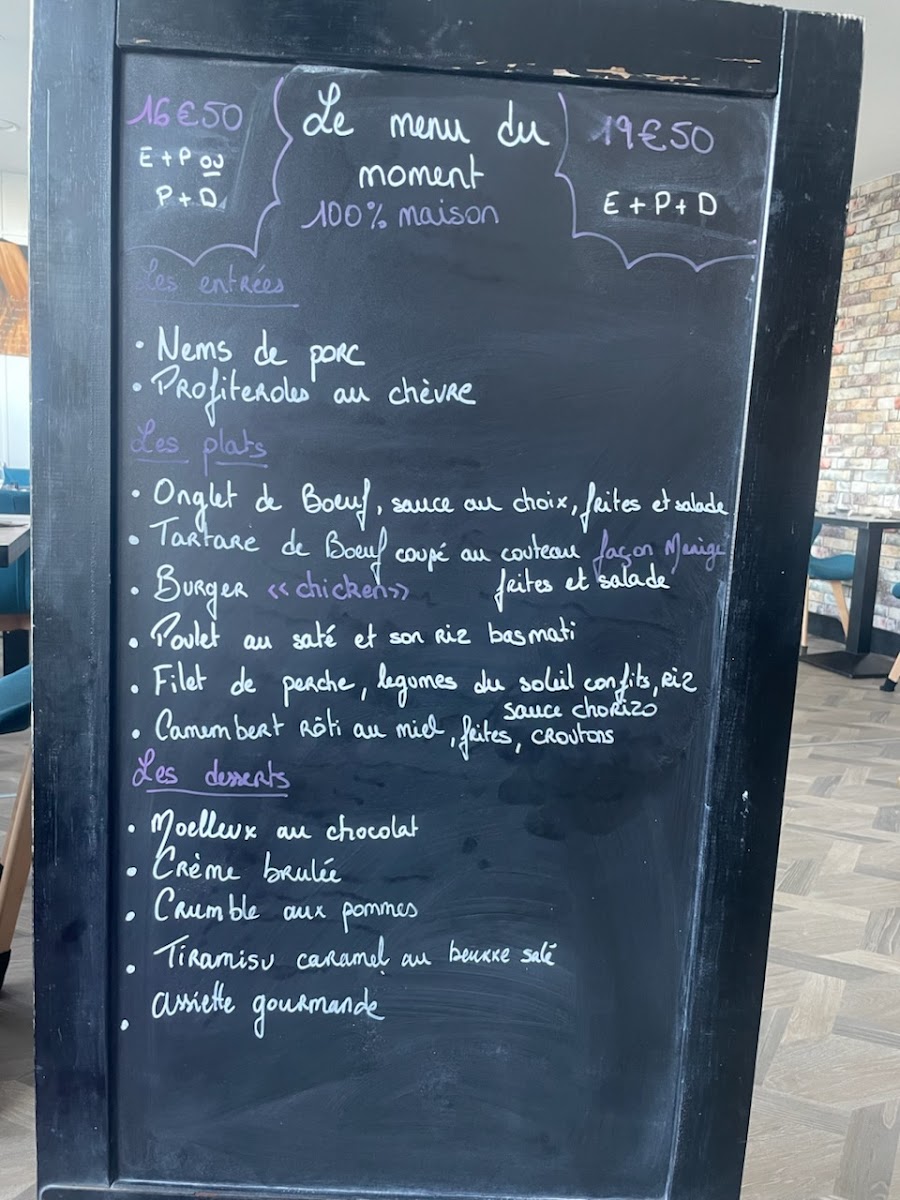 16€50
E + P ou
P + D
Le menu du
moment
100% maison
19€50
E + P + D
Les entrées
• Nems de porc
• Profiteroles au chèvre
Les plats
• Onglet de Boeuf, sauce au choix, frites et salade
• Tartare de Boeuf coupé au couteau façon
frites et salade
• Burger «chicken»
• Poulet au saté et son riz basmati
• Filet de perche, legumes du soleil confits, riz
sauce chorizo
• Camembert rôti au miel, frites, croutons
Les desserts
• Moelleux au chocolat
• Crème brulée
• Crumble aux pommes
• Tiramisu caramel au beurre salé
• Assiette gourmande